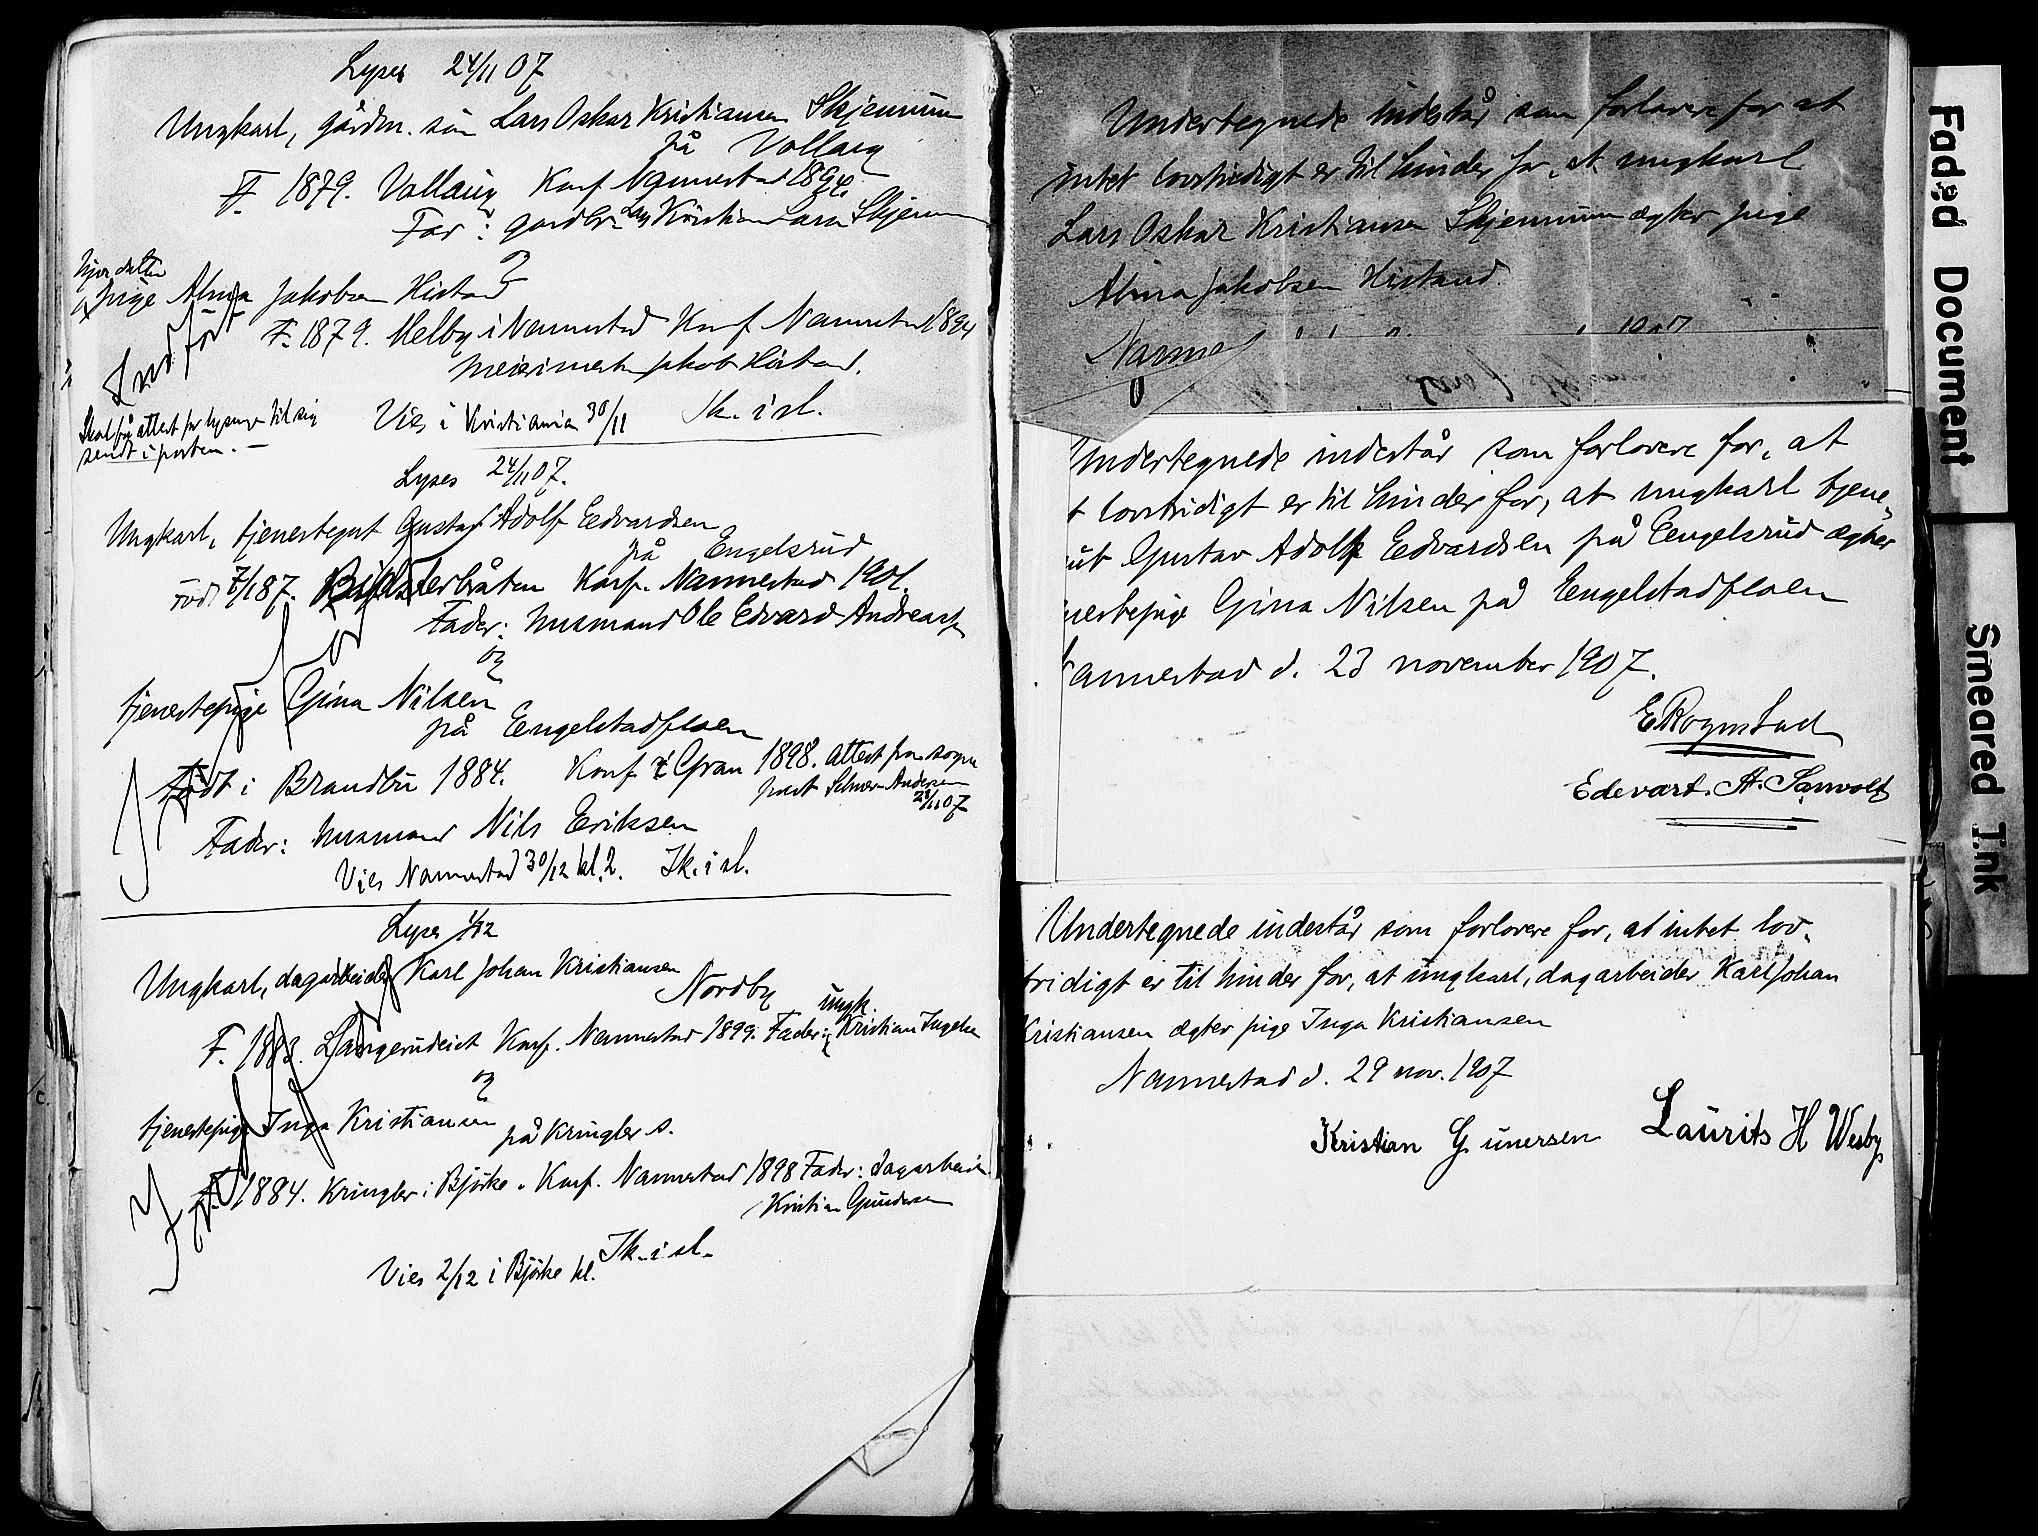 Lyses 24/11 07
Ungkarl, gårdm. sön Lars Oskar Kristiansen Skjennum
på Vollaug
F. 1879. Vollaug Konf Nannestad 1894.
Far: gårdbr. Kristian Larsen Skjennum
og
pige Alma Jakobsen Histad
F. 1879. Melby i Nannestad Konf Nannestad 1894
meierimester Jakob Histad.
Indfört
Skal få attest for lysning til sig
sendt i posten. —
Vies i Kristiania 30/11 Sk. i sl.
Lyses 24/11 07.
Ungkarl, tjenestegut Gustav Adolf Edvardsen
på Engelsrud
Född 7/1 87. Konf. Nannestad 1901.
Fader: husmand Ole Edvard Andreasen
og
tjenestepige Gina Nilsen
på Engelstadfloen
Indfört
Född i Brandbu 1884. Konf i Gran 1898. Attest fra sogne
prest Andersen
23/11 07
Fader: husmand Nils Eriksen
Vies Nannestad 30/12 kl. 2. Sk. i sl.
Lyses 1/12
Ungkarl, dagarbeider Karl Johan Kristiansen
Nordby
F. 1883. Langerudeiet Konf. Nannestad 1899. Fader: ungk. Kristian Ingelsen
og
tjenestepige Inga Kristiansen
på Kringler s.
Indfört
F. 1884. Kringler i Bjørke. Konf. Nannestad 1898 Fader: dagarbeider
Kristian Gundersen
Vies 2/12 i Bjørke kl. Sk. i sl.
Undertegnede indestår som forlovere for at
intet lovstridigt er til hinder for, at ungkarl
Lars Oskar Kristiansen Skjennum ægter pige
Alma Jakobsen Histand.
Nannes
Undertegnede indestår som forlovere for, at
t lovstridigt er til hinder for, at ungkarl tjene
ut Gustav Adolf Edvardsen på Engelsrud ægter
nestepige Gina Nilsen på Engelstadfloen
annestad d. 23 november 1907.
E Rognstad
Edevart. A. Sanvold
Undertegnede indestår som forlovere for, at intet lov-
tridigt er til hinder for, at ungkarl, dagarbeider Karl Johan
Kristiansen ægter pige Inga Kristiansen
Nannestad d. 29 nov. 1907
Kristian Gunersen Laurits H Wesby
Faded Document
Smeared Ink